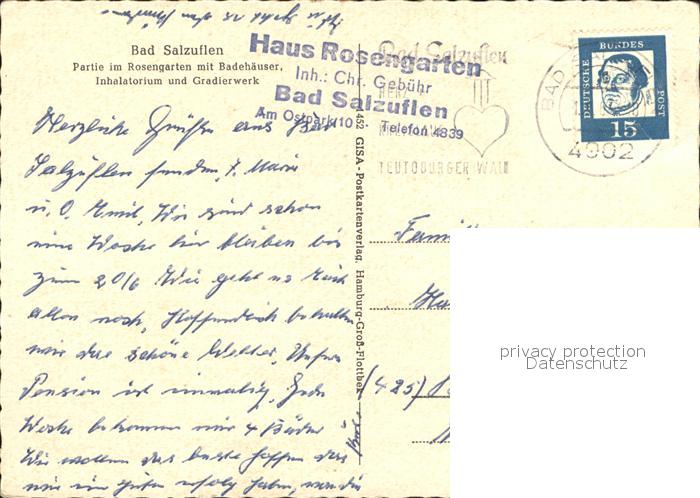 Bad Salzuflen
Partie im Rosengarten mit Badehäuser,
Inhalatorium und Gradierwerk
Haus Rosengarten
Inh.: Chr. Gebühr
Bad Salzuflen
Am Ostpark 10 - Telefon 4839
Bad Salzuflen
TEUTOBURGER WALD
BAD
4902
DEUTSCHE
BUNDES
POST
15
452 GISA-Postkartenverlag, Hamburg-Groß-Flottbek
Herzliche Grüße aus Bad
Salzuflen senden, T. Marie
u. O. Emil, Wir sind schon
eine Woche hier bleiben bis
zum 20/6 Wie geht es Euch
allen noch, Hoffendlich behalten
wir das schöne Wetter, Unsere
Pension ist einmalig, Jede
Woche bekommen wir 4 Bäder
Wir wollen das beste hoffen das
wir ein guten erfolg haben,
Famil
(425)
privacy protection
Datenschutz